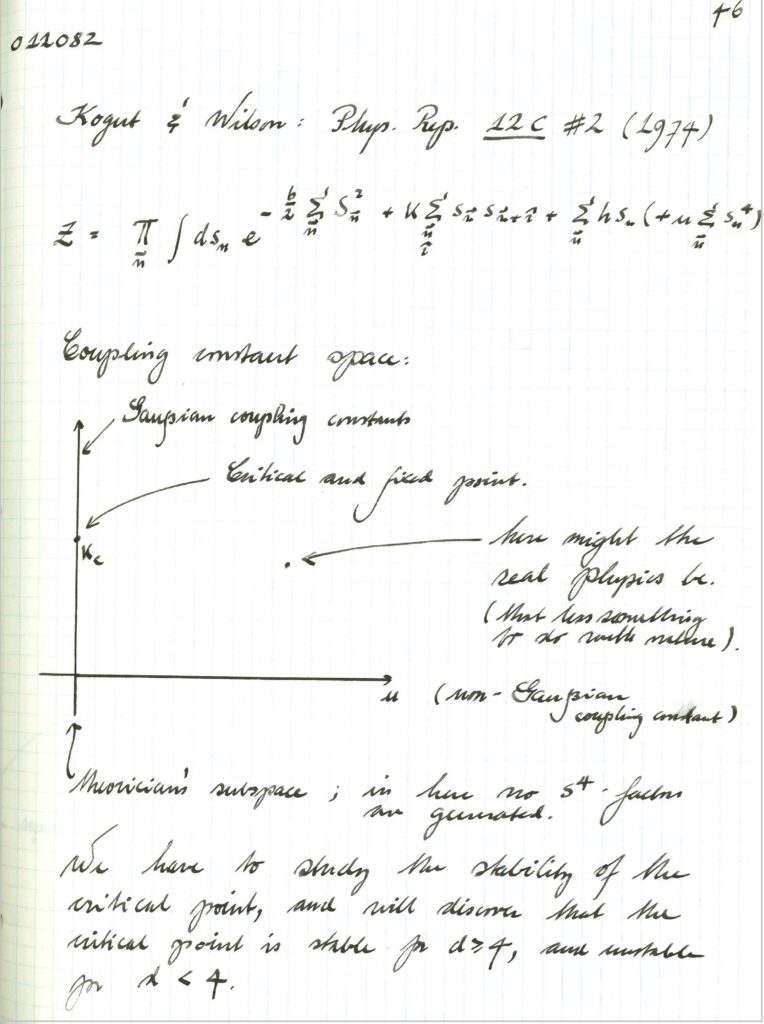 46
011082
Kogut & Wilson: Phys. Rep. 12C #2 (1974)
Z = Π_n⃗ ∫ ds_n e^{-b/2 Σ_n⃗ S_n⃗^2 + K Σ_{n⃗, î} s_n⃗ s_{n⃗+î} + Σ_n⃗ h s_n (+ u Σ_n⃗ s_n^4)}
Coupling constant space:
Gaussian coupling constants
Critical and fixed point.
K_c
here might the
real physics be.
(that has something
to do with nature).
u (non-Gaussian
coupling constant)
theorician's subspace; in here no S^4-factors
are generated.
We have to study the stability of the
critical point, and will discover that the
critical point is stable for d≥4, and unstable
for d < 4.